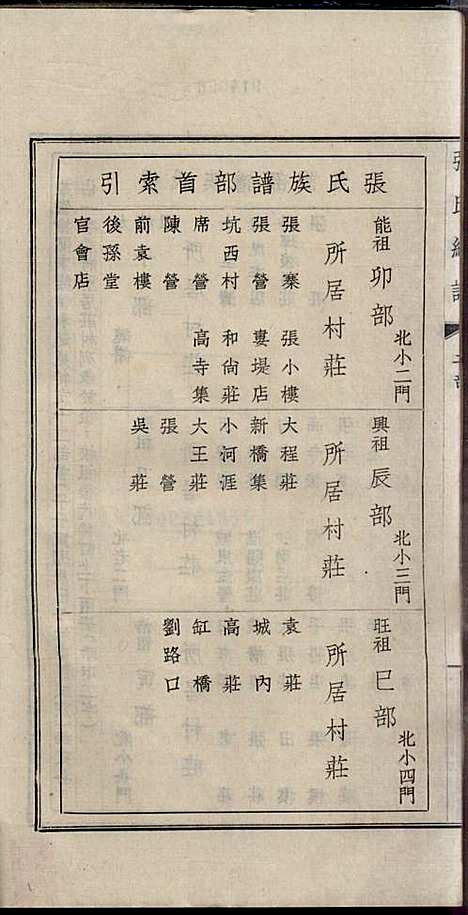 張氏族譜部首索引
能祖 卯部 北小二門
所居村莊
張寨 張小樓
張營 婁堤店
坑西村 和尙莊
席營 高寺集
陳營
前袁樓
後孫堂
官會店
興祖 辰部 北小三門
所居村莊
大程莊
新橋集
小河涯
大王莊
張營
吳莊
旺祖 巳部 北小四門
所居村莊
袁莊
城內
高莊
缸橋
劉路口
張氏